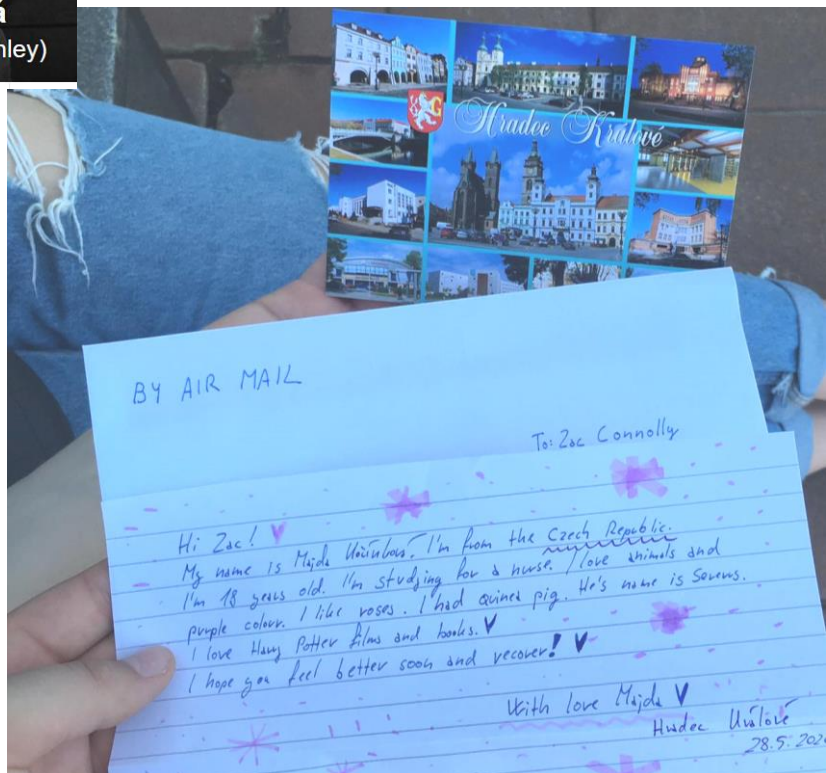 á
Hradec Králové
BY AIR MAIL
To: Zac Connolly
Hi Zac!
My name is Majda I'm from the Czech Republic.
I'm 18 years old. I'm studying for a nurse. I love animals and
purple colour. I like roses. I had quinea pig. He's name is Severus.
I love Harry Potter films and books.
I hope you feel better soon and recover!
With love Majda
Hradec Králové
28.5.202